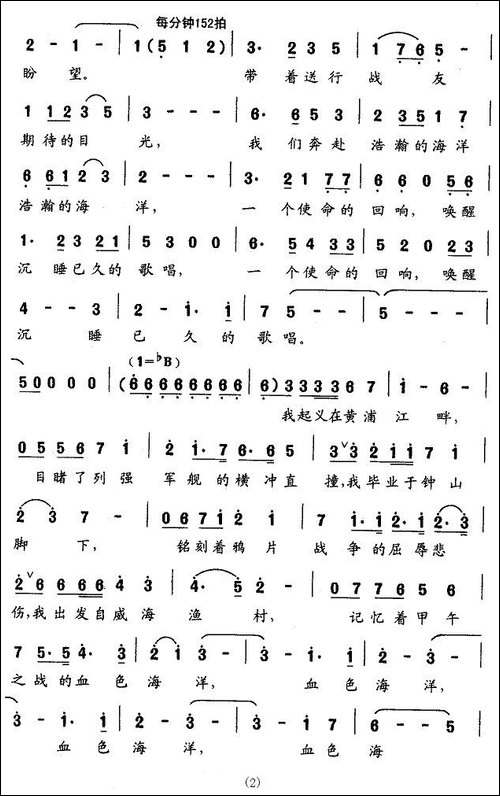 每分钟152拍
2 - 1 - | 1 ( 5 1 2 ) | 3· 2 3 5 | 1 7 6 5 -
盼 望。 带 着 送 行 战 友
1 1 2 3 5 | 3 - - - | 6· 6 5 3 | 2 3 5 1 7
期 待 的 目 光， 我 们 奔 赴 浩 瀚 的 海 洋
6 6 1 2 3 | 2 - - - | 3· 2 1 7 7 | 6 6 0 5 6
浩 瀚 的 海 洋， 一 个 使 命 的 回 响， 唤 醒
1· 2 3 2 1 | 5 3 0 0 | 6· 5 4 3 3 | 5 2 0 2 3
沉 睡 已 久 的 歌 唱， 一 个 使 命 的 回 响， 唤 醒
4 - - 3 | 2 - 1· 1 | 7 5 - - | 5 - - -
沉 睡 已 久 的 歌 唱。
(1=♭B)
5 0 0 0 0 | ( 6 6 6 6 6 6 6 6 | 6 ) 3 3 3 3 3 6 7 | 1 - 6 -
我 起 义 在 黄 浦 江 畔，
0 5 5 6 7 1 | 2 1· 7 6· 5 | 3 3 2 1 1 7 1
目 睹 了 列 强 军 舰 的 横 冲 直 撞，我 毕 业 于 钟 山
2 3 7 - | 0 6 7 1 2 1 | 7 1· 1 2· 1 2· 3
脚 下， 铭 刻 着 鸦 片 战 争 的 屈 辱 悲
2 6 6 6 6 4 3 | 4· 5 2 - | 0 7 7 6 5 6
伤，我 出 发 自 威 海 渔 村， 记 忆 着 甲 午
7 5· 5 4· 3 | 2 1 3 - | 3 - 1· 1 | 2 - 3 -
之 战 的 血 色 海 洋， 血 色 海 洋，
3 - 1· 1 | 2 - 3 - | 3 - 1· 7 | 6 - - 5
血 色 海 洋， 血 色 海
(2)